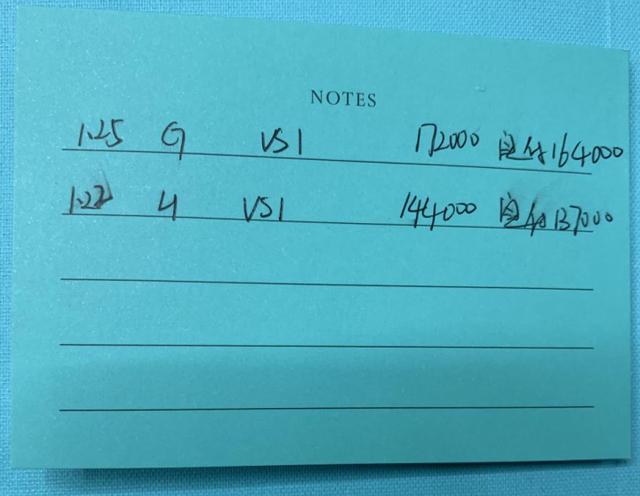 NOTES
1.25 G VS1 172000 164000
1.22 H VS1 144000 137000